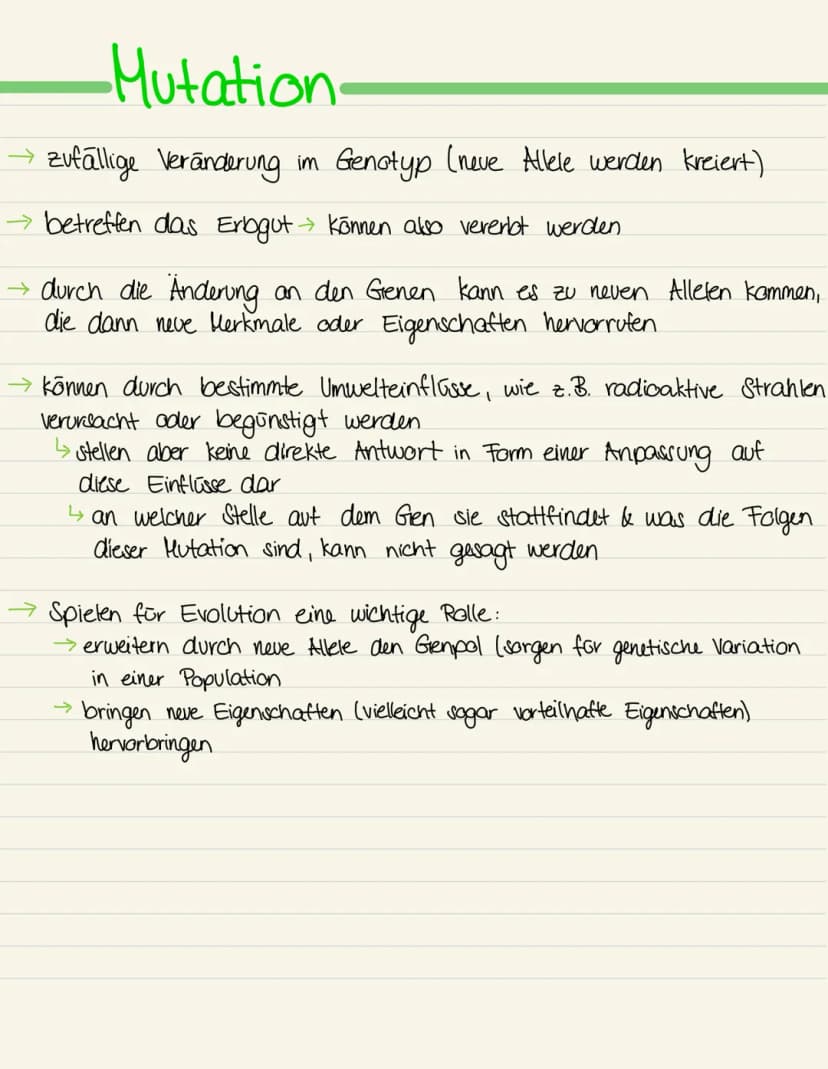 Mutation
→ zufällige Veränderung im Genotyp (neue Allele werden kreiert)
→ betreffen das Erbgut → können also vererbt werden
→ durch die Änderung an den Genen kann es zu neuen Allelen kommen,
die dann neue Merkmale oder Eigenschaften hervorrufen
→ können durch bestimmte Umwelteinflüsse, wie z.B. radioaktive Strahlen
verursacht oder begünstigt werden
↳ stellen aber keine direkte Antwort in Form einer Anpassung auf
diese Einflüsse dar
↳ an welcher Stelle auf dem Gen sie stattfindet & was die Folgen
dieser Mutation sind, kann nicht gesagt werden
→ Spielen für Evolution eine wichtige Rolle:
→ erweitern durch neue Allele den Genpol (sorgen für genetische Variation
in einer Population
→ bringen neue Eigenschaften (vielleicht sogar vorteilhafte Eigenschaften)
hervorbringen